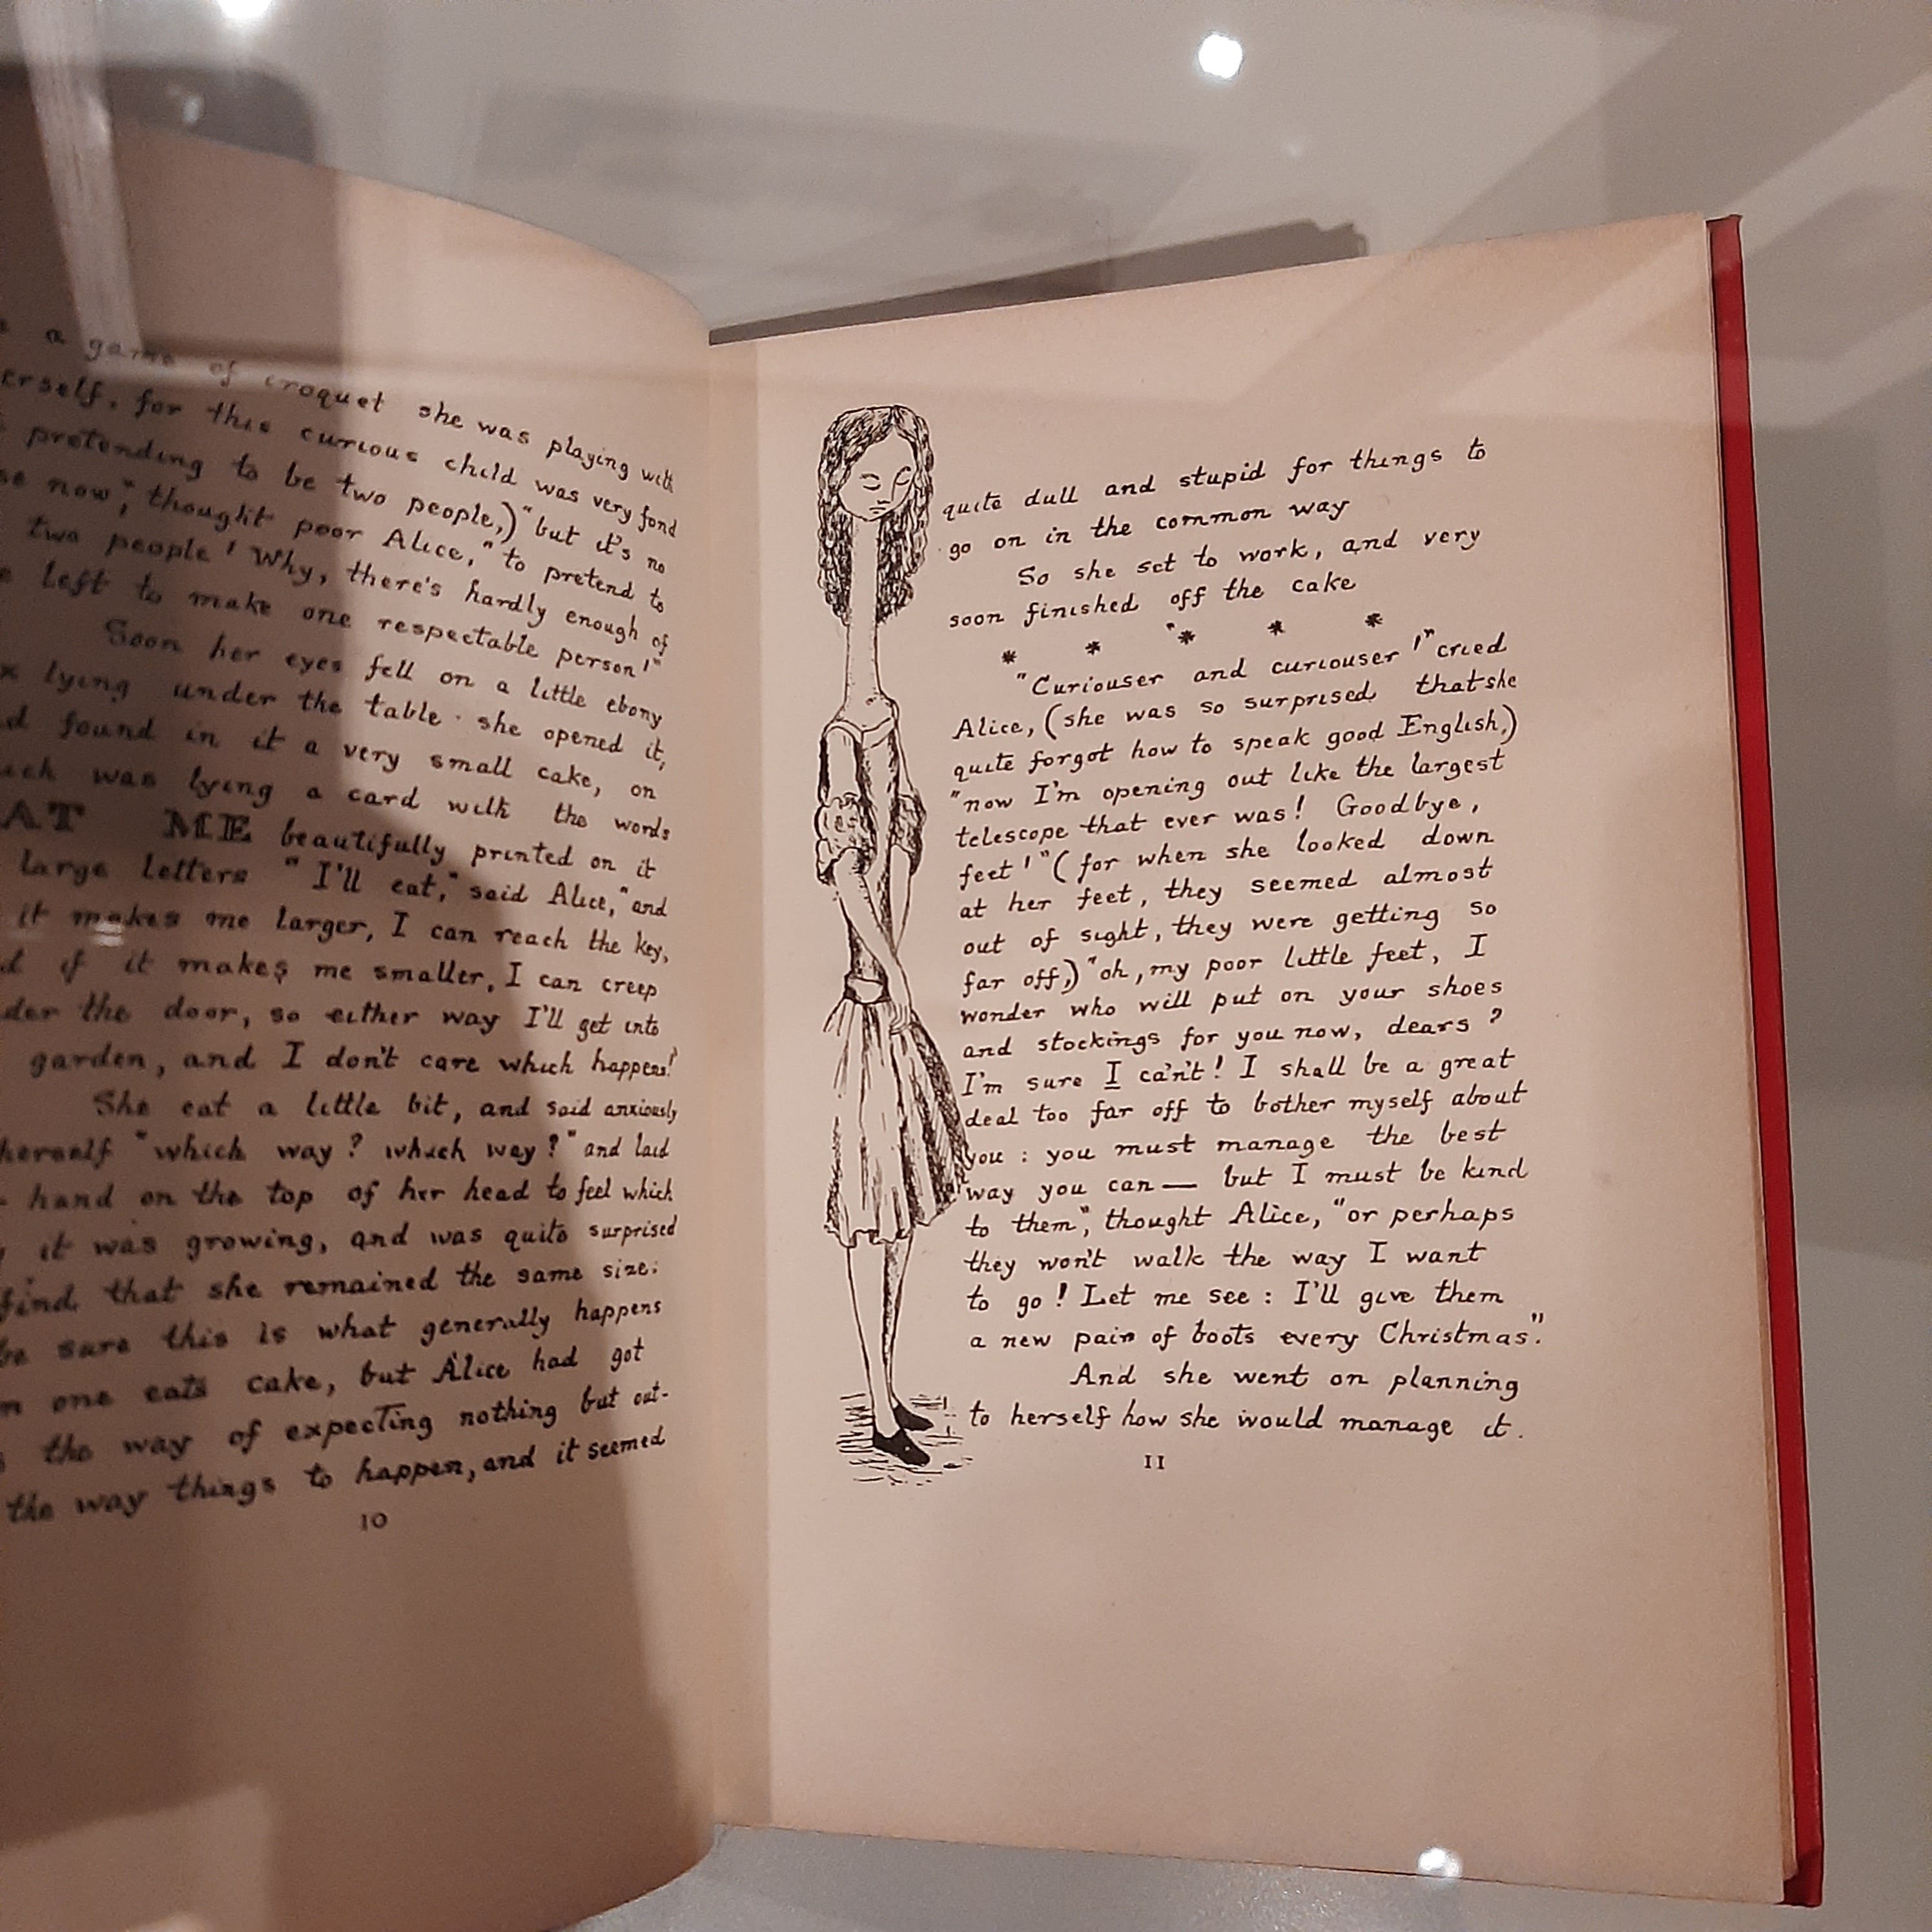 a game of croquet she was playing with
erself, for this curious child was very fond
pretending to be two people,) "but it's no
se now", thought poor Alice, "to pretend to
two people! Why, there's hardly enough of
left to make one respectable person!"
Soon her eyes fell on a little ebony
x lying under the table. she opened it,
d found in it a very small cake, on
ich was lying a card with the words
AT ME beautifully printed on it
large letters "I'll eat," said Alice, "and
it makes me larger, I can reach the key,
d if it makes me smaller, I can creep
der the door, so either way I'll get into
garden, and I don't care which happens!
She eat a little bit, and said anxiously
herself "which way? which way?" and laid
hand on the top of her head to feel which
it was growing, and was quite surprised
find that she remained the same size:
be sure this is what generally happens
n one eats cake, but Alice had got
the way of expecting nothing but out-
the way things to happen, and it seemed
10
quite dull and stupid for things to
go on in the common way
So she set to work, and very
soon finished off the cake
* * * * *
"Curiouser and curiouser!" cried
Alice, (she was so surprised that she
quite forgot how to speak good English,)
"now I'm opening out like the largest
telescope that ever was! Goodbye,
feet!" (for when she looked down
at her feet, they seemed almost
out of sight, they were getting so
far off,) "oh, my poor little feet, I
wonder who will put on your shoes
and stockings for you now, dears?
I'm sure I can't! I shall be a great
deal too far off to bother myself about
you: you must manage the best
way you can — but I must be kind
to them", thought Alice, "or perhaps
they won't walk the way I want
to go! Let me see: I'll give them
a new pair of boots every Christmas".
And she went on planning
to herself how she would manage it.
11